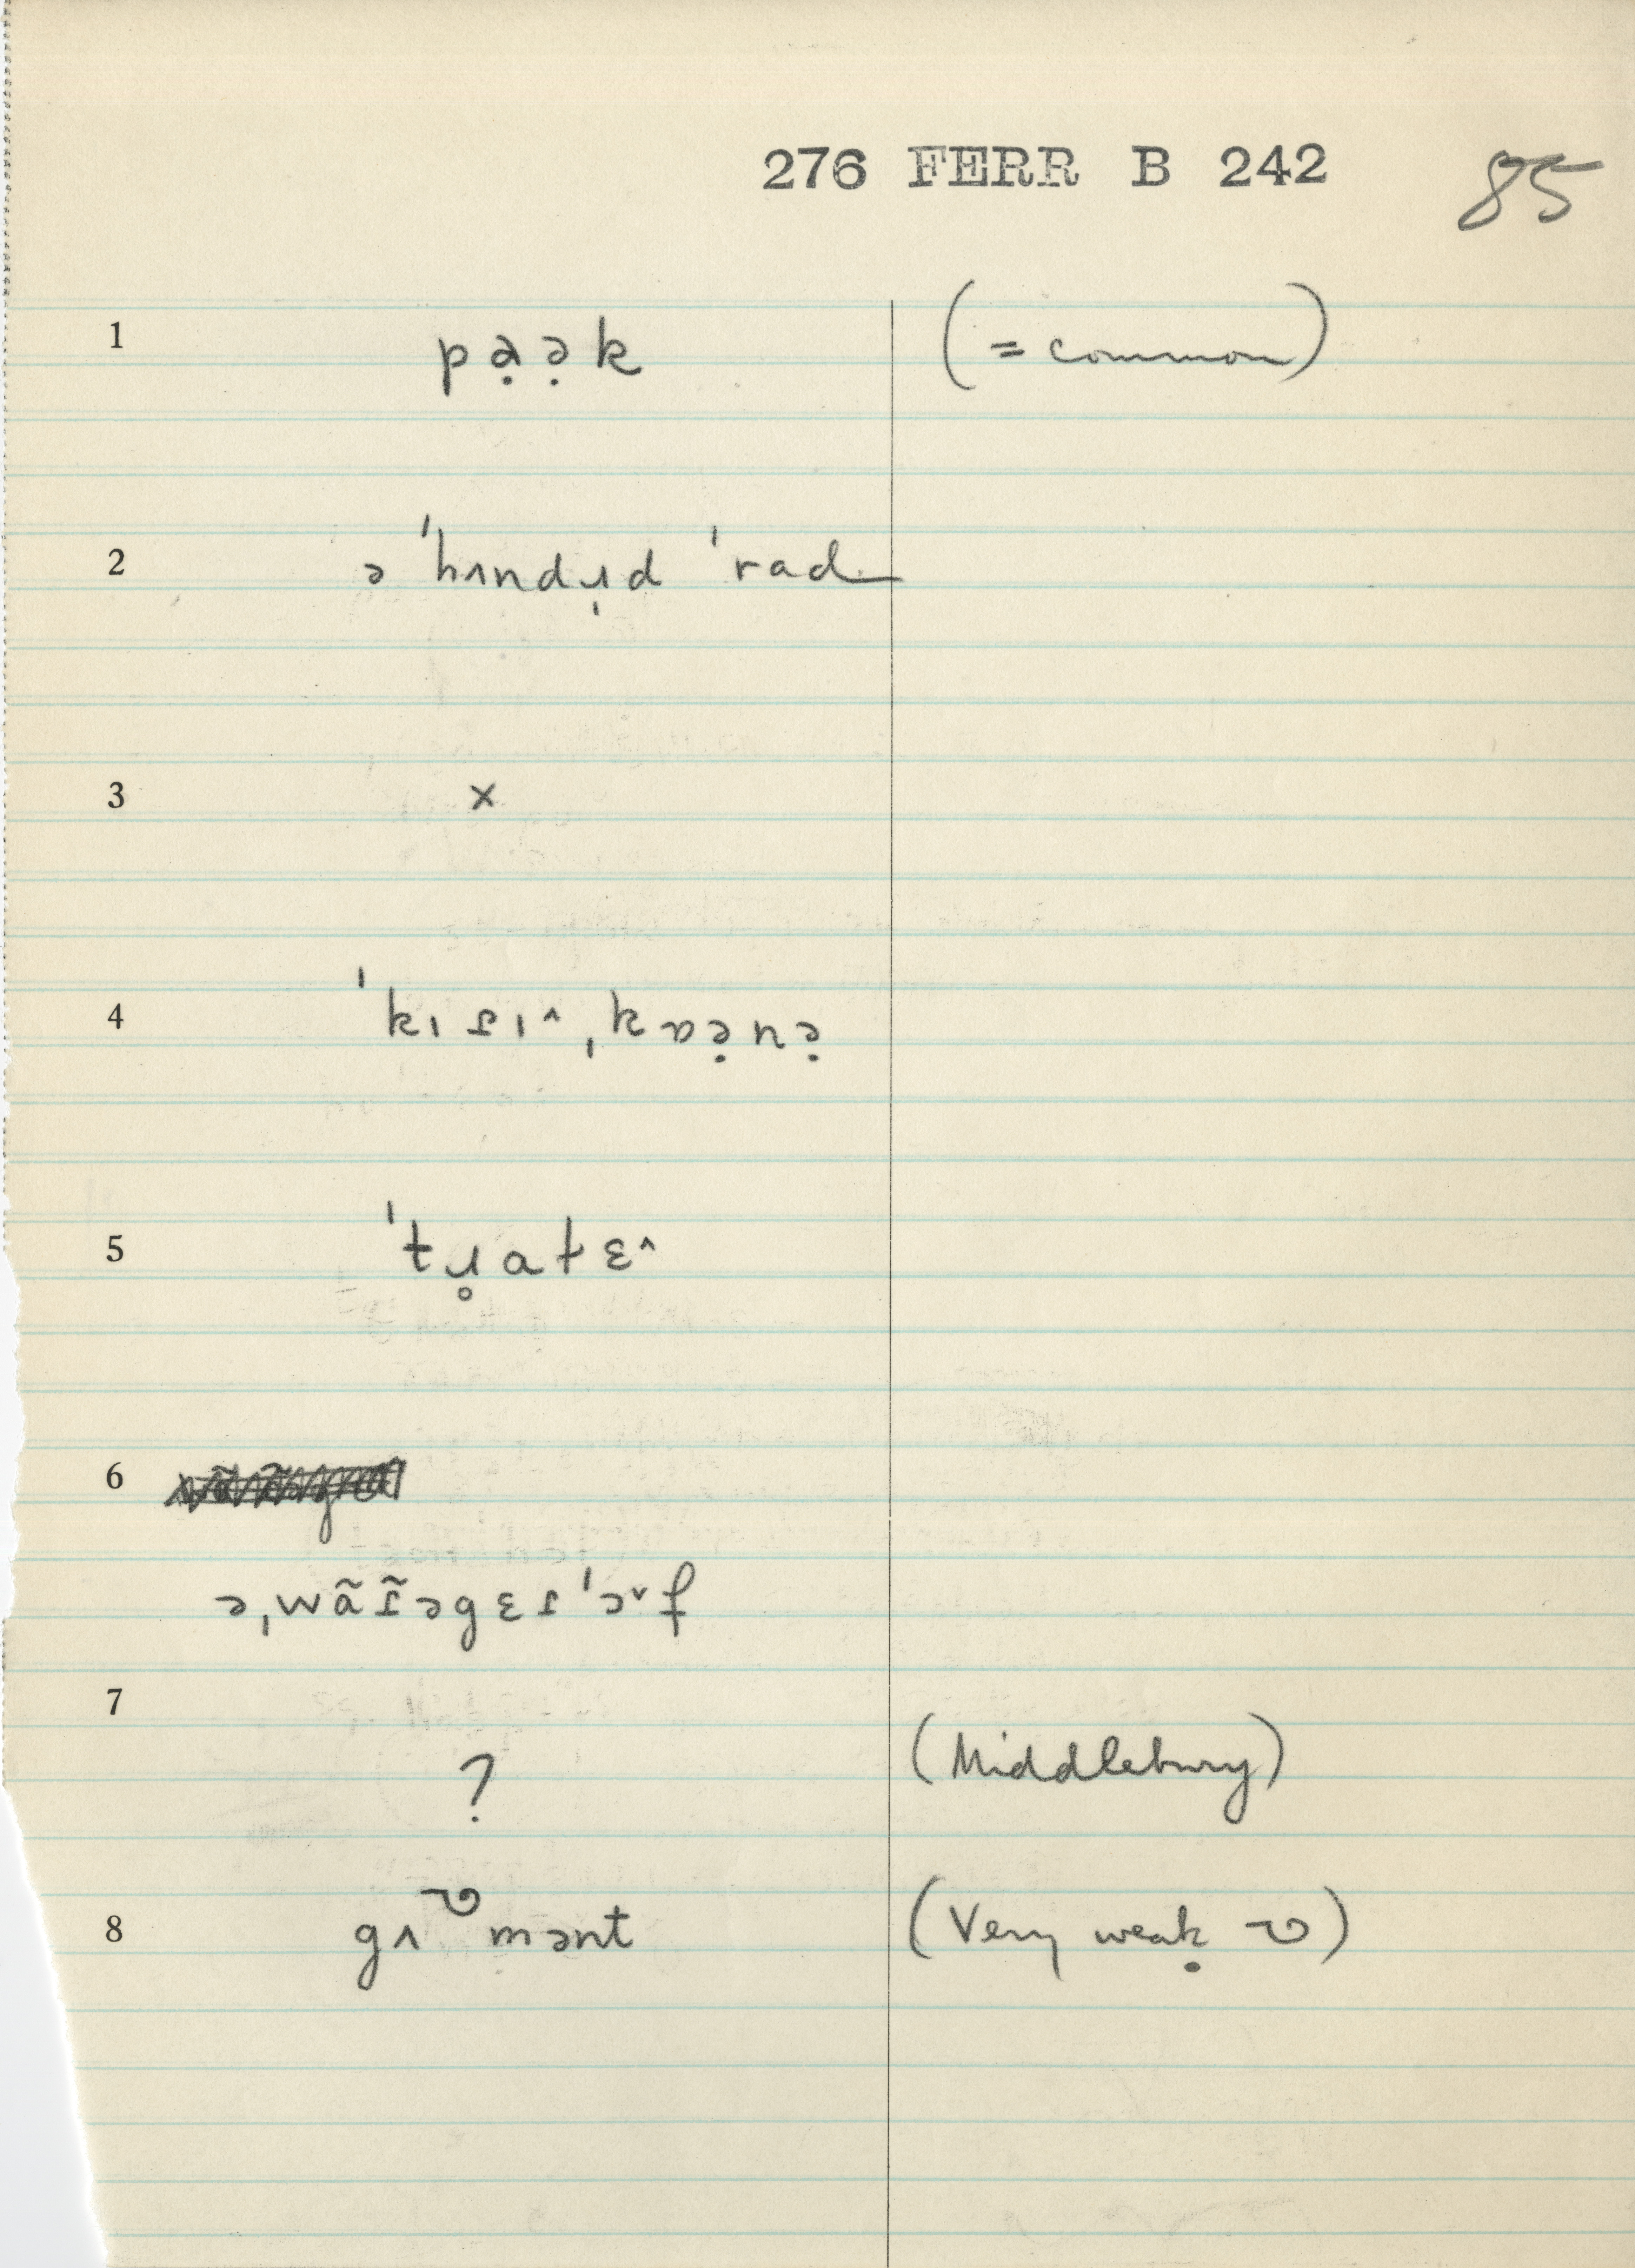 276 FERR B 242 85
1 pạə̣k (= common)
2 ə ˈhʌndɹ̩d ˈrad
3 x
4 ˈkɪsɪ^ ˌkɒə̣nə̣
5 ˈtɹ̥atɛ^
6
ə ˌwãɪ̃əgɛɪˈɔ˅f
7 ? (Middlebury)
8 gʌʋmənt (Very weak ʋ)